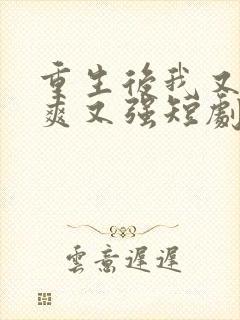 重生後我又
爽又強短劇
雲意遲遲